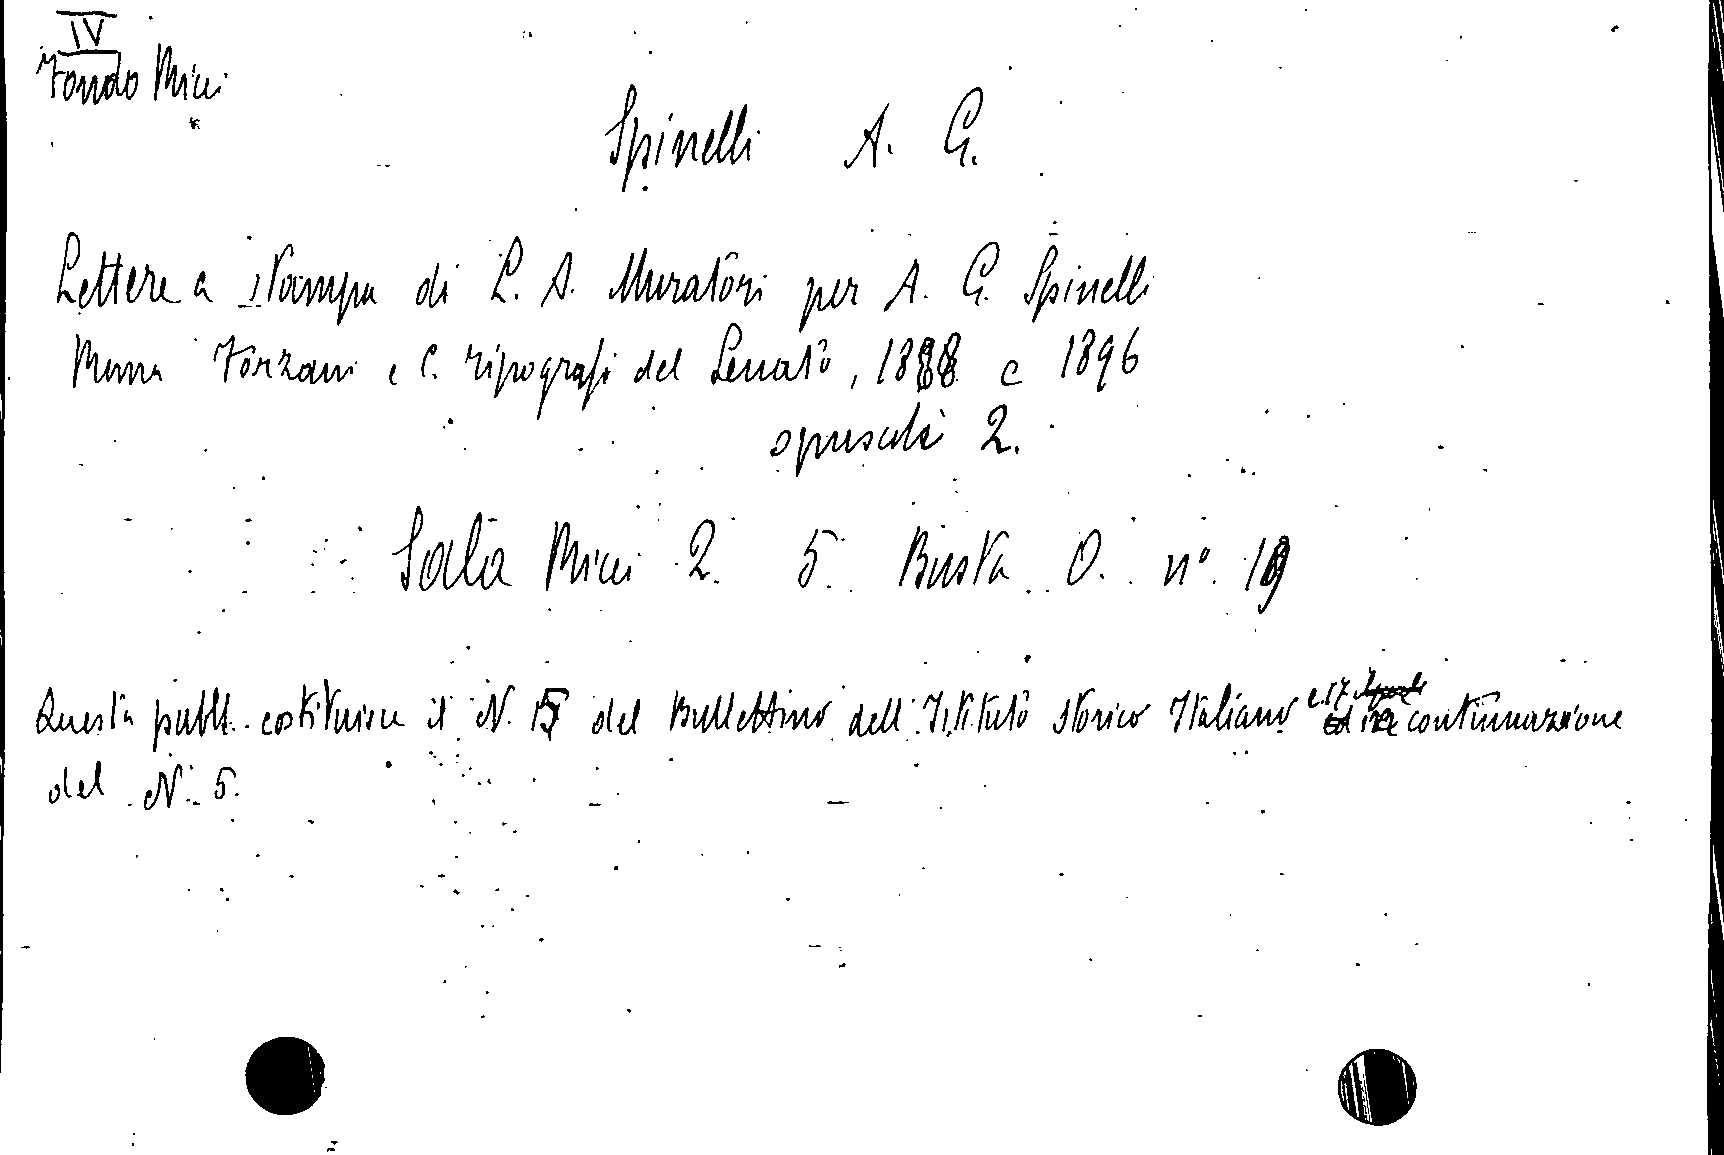 IV
Fondo Ricci
Spinelli A. G.
Lettere a stampa di L. A. Muratori per A. G. Spinelli
Roma Forzani e C. tipografi del Senato, 1888 e 1896
opuscoli 2.
Sala Ricci 2. 5. Busta O. n° 19
Questa pubbl. costituisce il N. 5 del Bullettino dell'Istituto Storico Italiano e 17 continuazione
del N. 5.